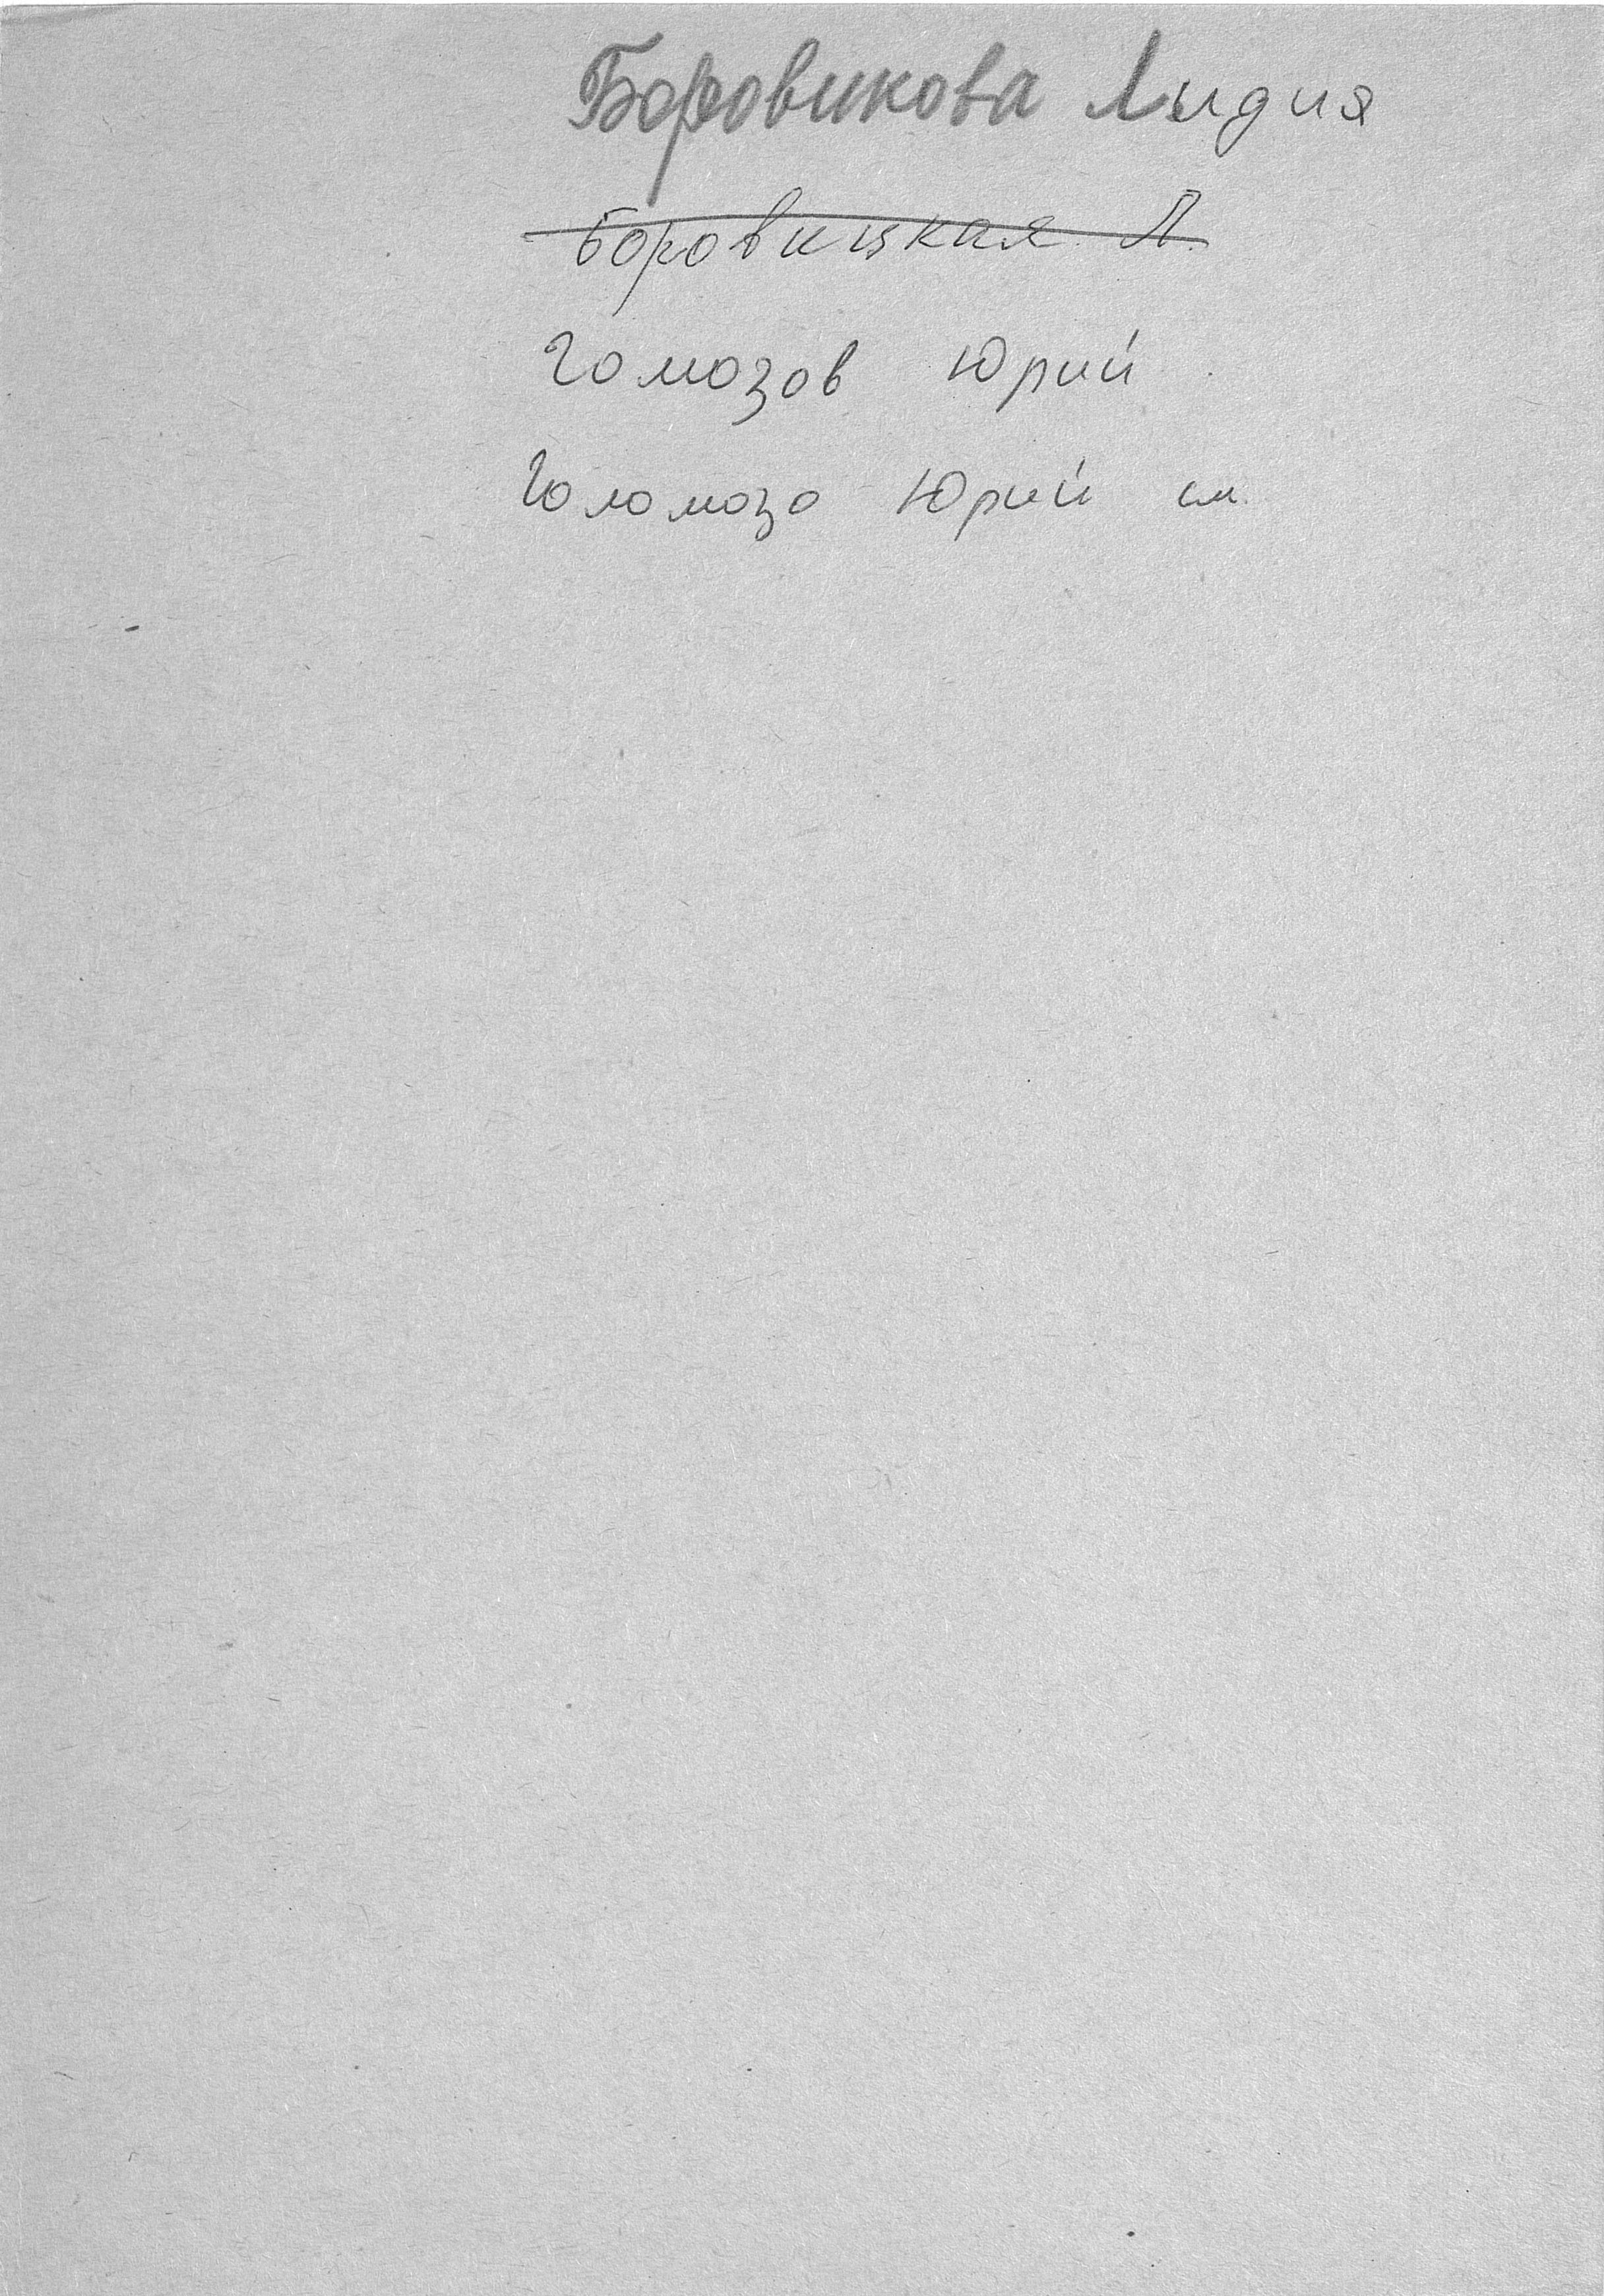 Боровикова Лидия
Боровицкая Л.
Гомозов Юрий
Голомозо Юрий см.